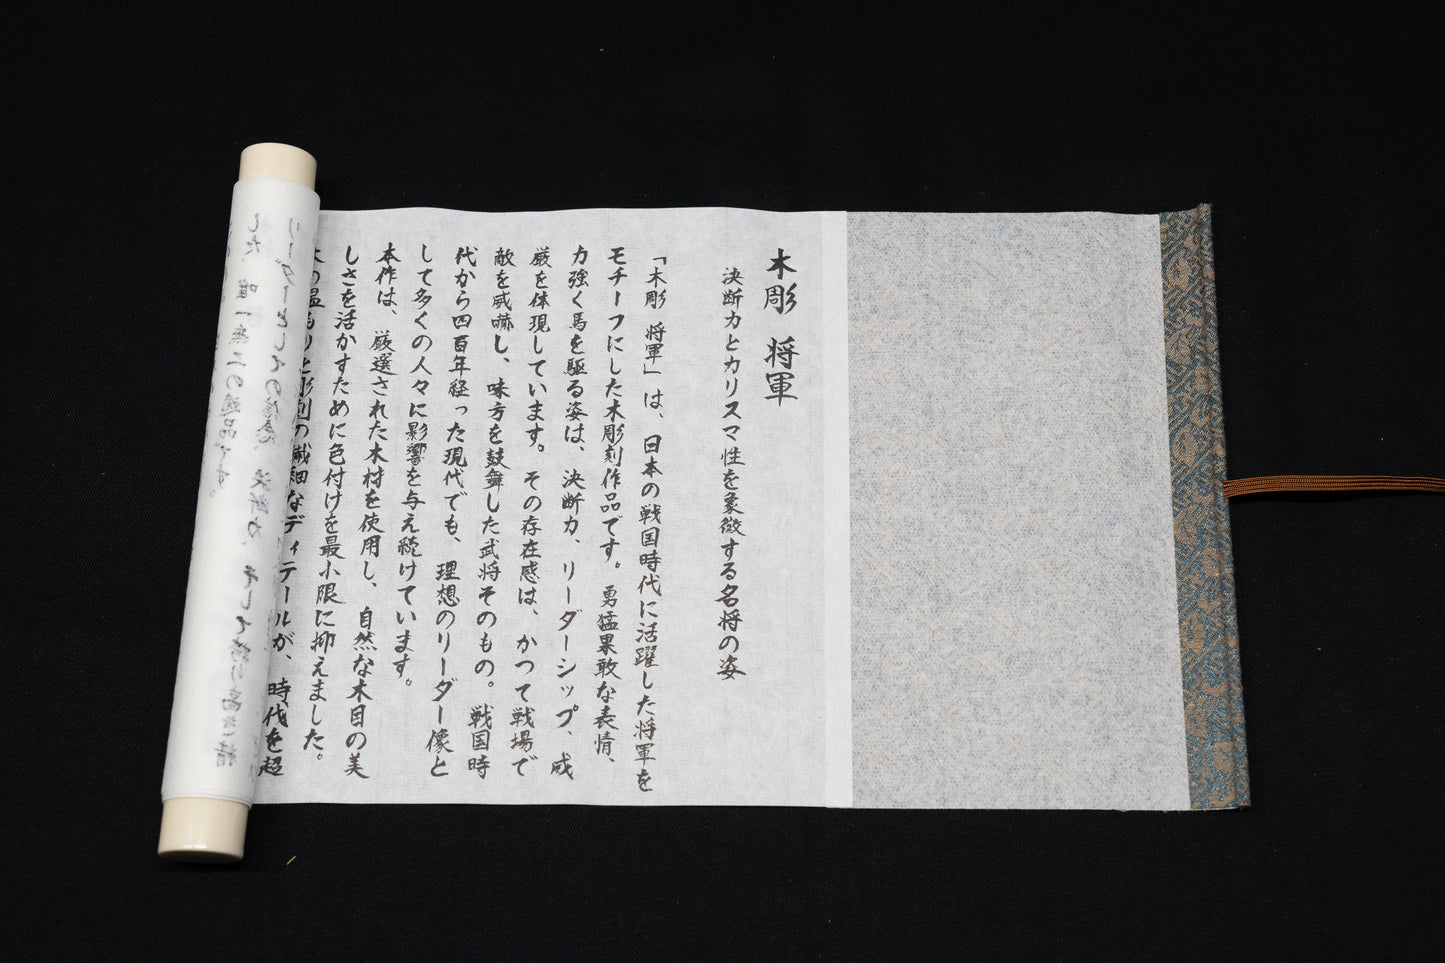 木彫 将軍
決断力とカリスマ性を象徴する名将の姿
「木彫 将軍」は、日本の戦国時代に活躍した将軍を
モチーフにした木彫刻作品です。勇猛果敢な表情、
力強く馬を駆る姿は、決断力、リーダーシップ、威
厳を体現しています。その存在感は、かつて戦場で
敵を威嚇し、味方を鼓舞した武将そのもの。戦国時
代から四百年経った現代でも、理想のリーダー像と
して多くの人々に影響を与え続けています。
本作は、厳選された木材を使用し、自然な木目の美
しさを活かすために色付けを最小限に抑えました。
木の温もりと彫刻の繊細なディテールが、時代を超
リーダーとしての信念、決断力、そして誇り高き精
した、唯一無二の逸品です。